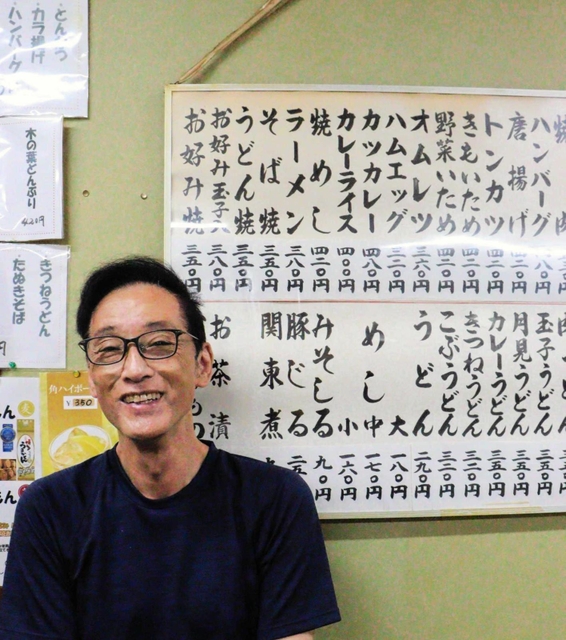 ハンバーグ 三五〇円
唐揚げ 三五〇円
トンカツ 三五〇円
きもいため 三五〇円
野菜いため 三五〇円
オムレツ 三六〇円
ハムエッグ 三二〇円
カツカレー 四八〇円
カレーライス 四〇〇円
焼めし 四二〇円
ラーメン 三八〇円
そば焼 三五〇円
うどん焼 三五〇円
お好み玉子入 三八〇円
お好み焼 三五〇円
玉子うどん 三五〇円
月見うどん 三五〇円
カレーうどん 三五〇円
きつねうどん 三三〇円
こぶうどん 三三〇円
うどん 二九〇円
大 一八〇円
めし 中 一七〇円
小 一六〇円
みそしる 九〇円
豚じる
関東煮
お茶漬
・とんかつ
・カラ揚げ
・ハンバーグ
木の葉どんぶり
420円
きつねうどん
たぬきそば
角ハイボール
¥350